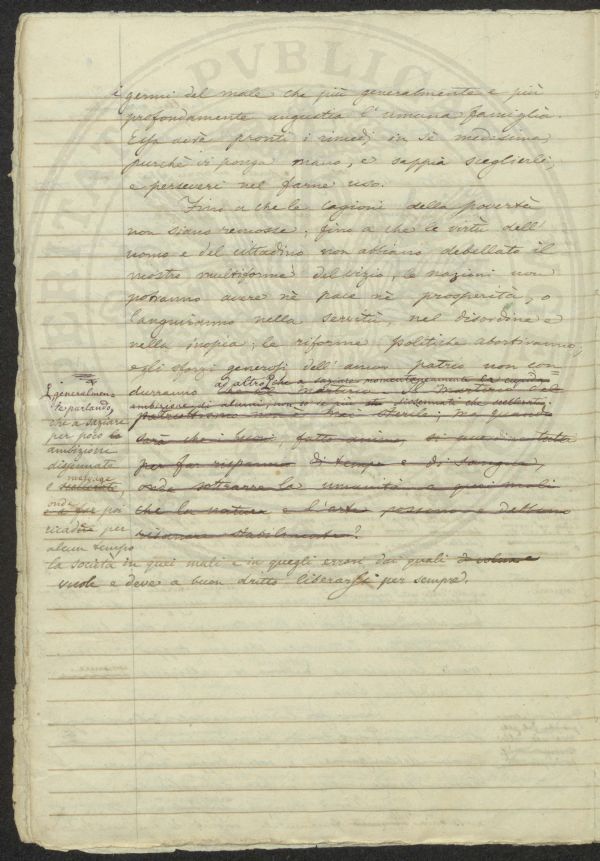 PVBLICA
i germi del male che più generalmente e più
profondamente angustia l'umana famiglia.
Essa avrà pronti i rimedj in sè medesima,
purchè vi ponga mano, e sappia sceglierli,
e perseveri nel farne uso.
Fino a che le cagioni della povertà
non siano remosse, fino a che le virtù dell'
uomo e del cittadino non abbiano debellato il
mostro multiforme del vizio, le nazioni non
potranno avere nè pace nè prosperità, o
languiranno nella servitù, nel disordine e
nella inopia; le riforme politiche abortiranno,
e gli sforzi generosi dell'amor patrio non con-
durranno
ad altro,
che a saziare momentaneamente la cupida
ambizione di alcuni,
patriottismo sterile; ma quando
sarà che
per far risparmio di tempo e di sangue,
onde sottrarre la umanità a quei mali
che la natura e l'arte possono e debbono
risanare stabilmente?
generalmen-
te parlando,
che a saziare
per poco
ambizioni
e malvage
onde
poi
per
alcun tempo
la società in quei mali e in quegli errori dai quali
vuole e deve a buon dritto liberarsi per sempre.